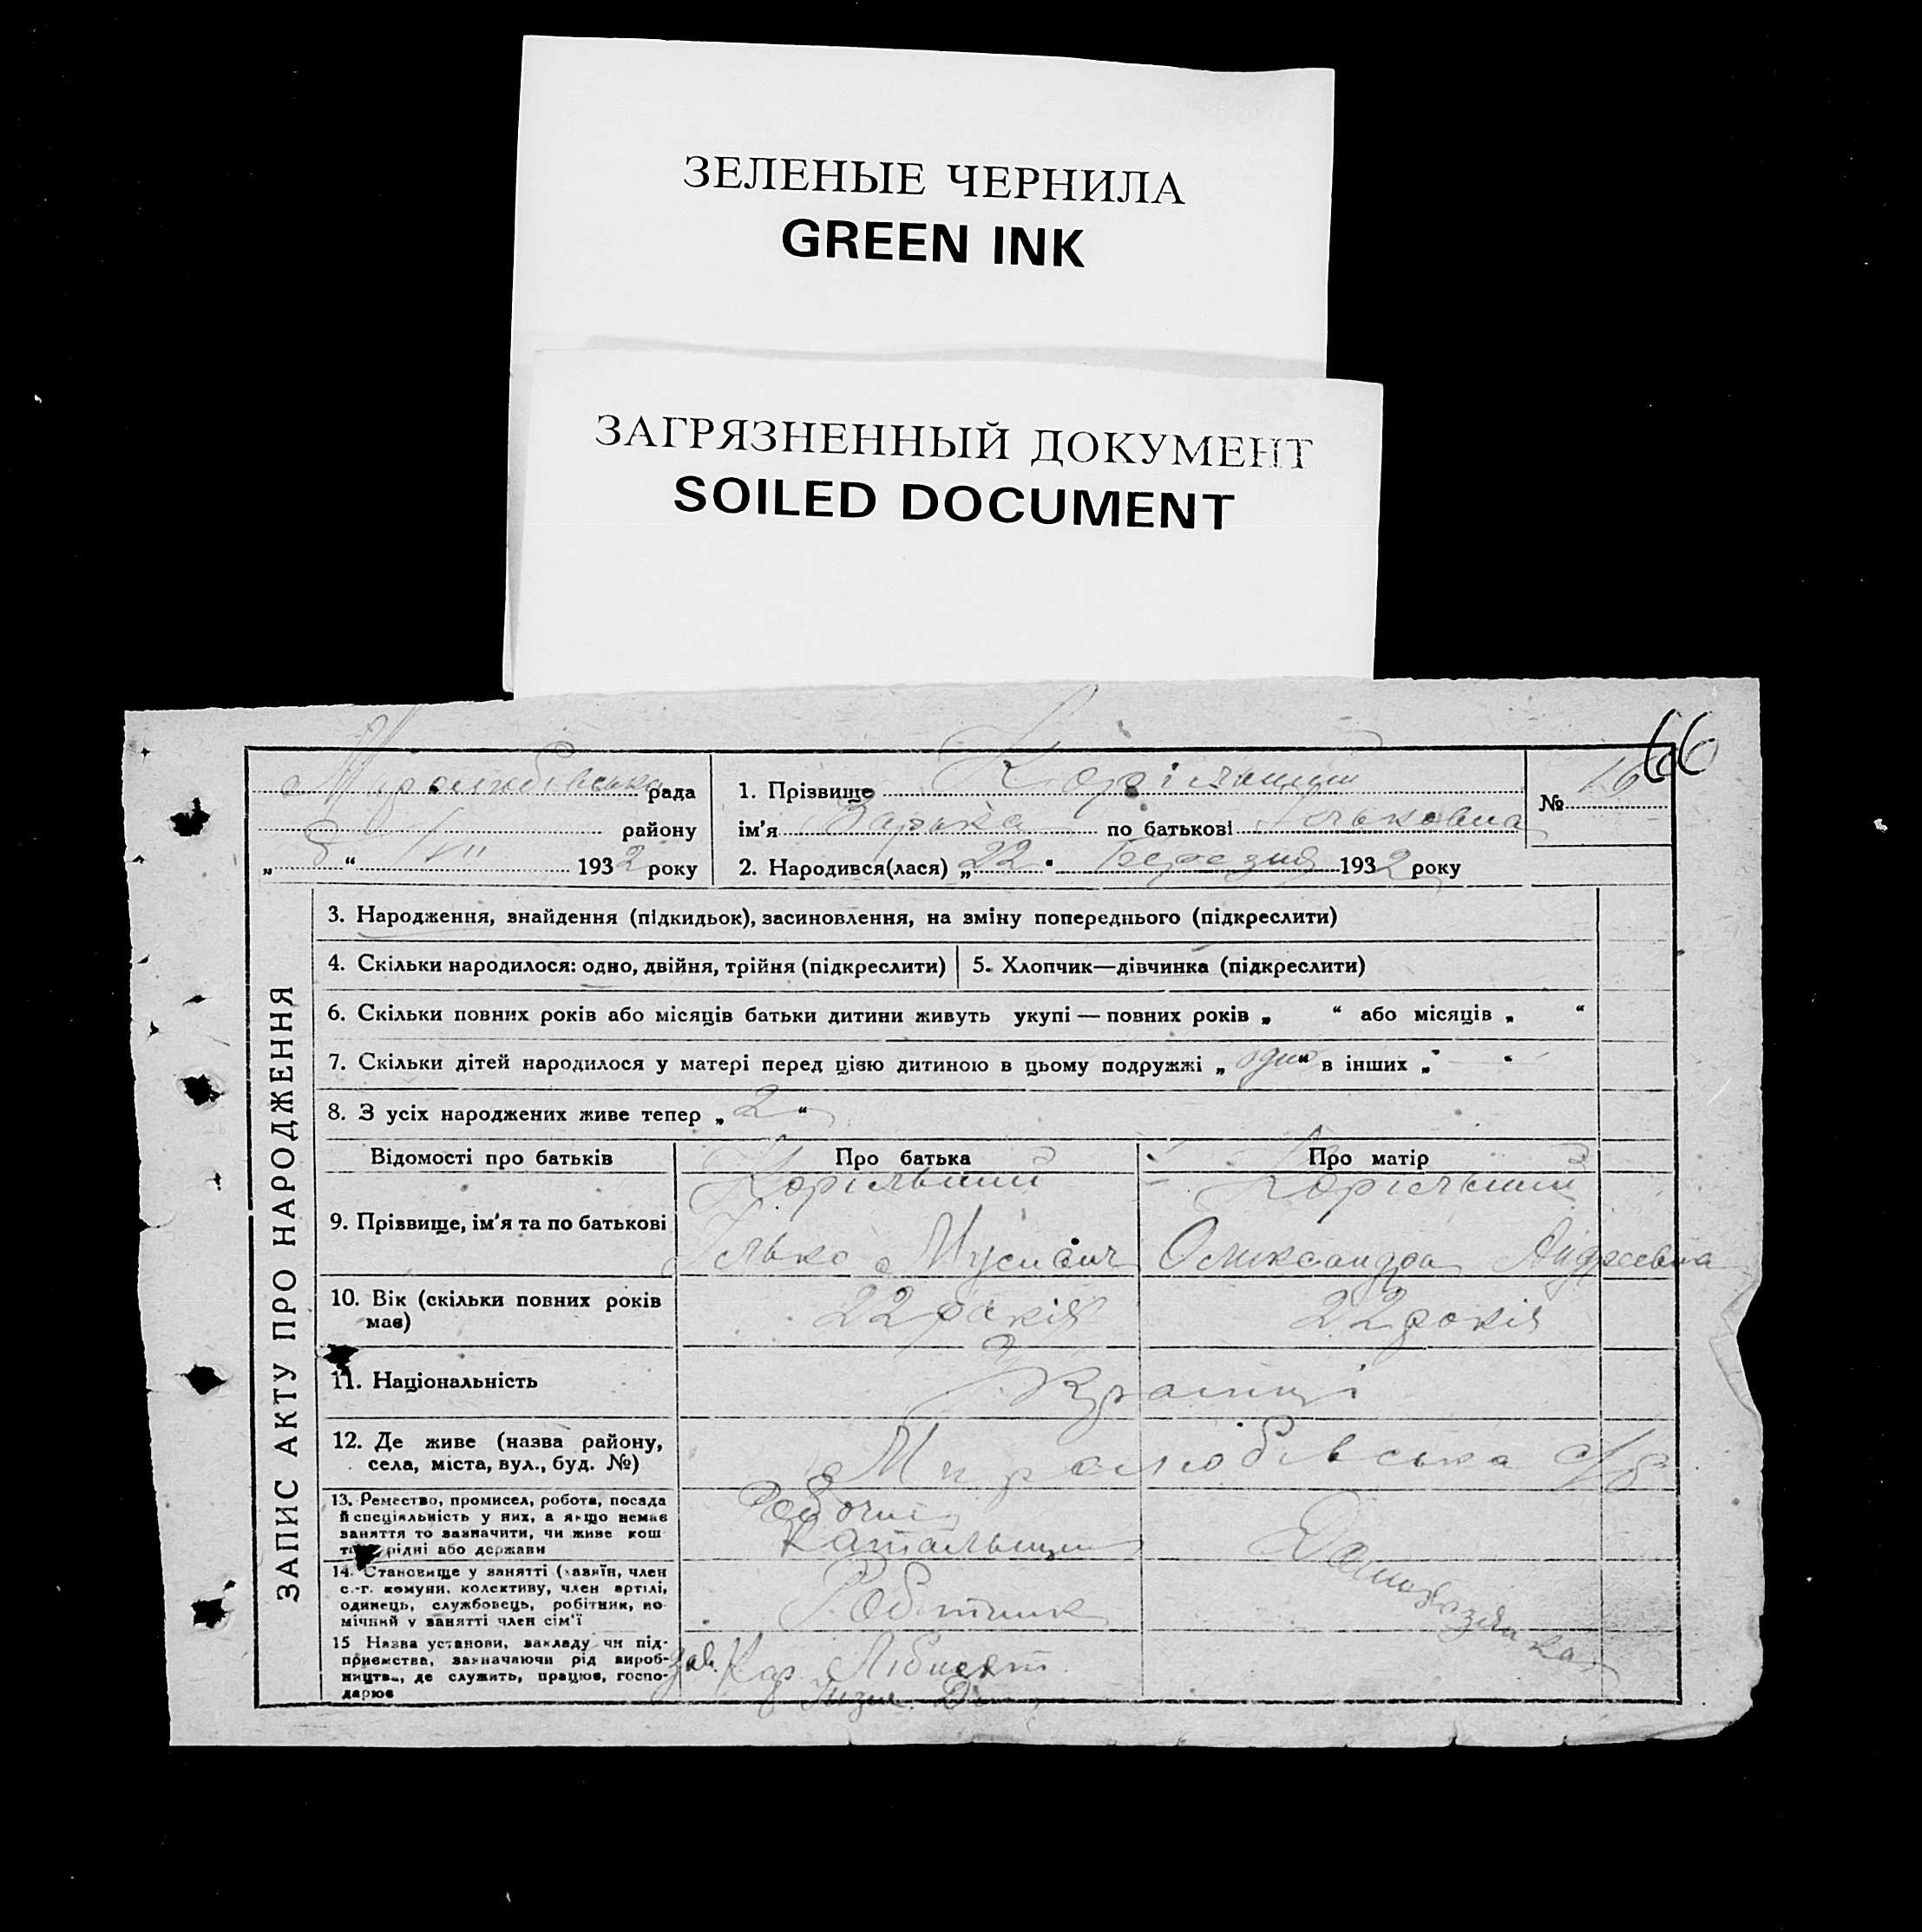 ЗЕЛЕНЫЕ ЧЕРНИЛА
GREEN INK
ЗАГРЯЗНЕННЫЙ ДОКУМЕНТ
SOILED DOCUMENT
66
Миролюбівська рада
району
„ 8 “ IV 1932 року
1. Прізвище
№ 16
ім'я Варька по батькові Ільковна
2. Народився(лася) „ 22 " Березня 1932 року
ЗАПИС АКТУ ПРО НАРОДЖЕННЯ
3. Народження, знайдення (підкидьок), засиновлення, на зміну попереднього (підкреслити)
4. Скільки народилося: одно, двійня, трійня (підкреслити)
5. Хлопчик—дівчинка (підкреслити)
6. Скільки повних років або місяців батьки дитини живуть укупі — повних років „ “ або місяців „ “
7. Скільки дітей народилося у матері перед цією дитиною в цьому подружжі „ одно “ в інших „ — “
8. З усіх народжених живе тепер „ 2 “
Відомості про батьків
Про батька
Про матір
9. Прізвище, ім'я та по батькові
Корісьький
Ілько Мусиович
Олександра Андреевна
10. Вік (скільки повних років має)
22 років
22 років
11. Національність
Українці
12. Де живе (назва району, села, міста, вул., буд. №)
Миролюбівська с/р
13. Ремество, промисел, робота, посада й спеціяльність у них, а якщо немає заняття то зазначити, чи живе кош рідні або держави
Робочий
Катальщик
Домохазяйка
14. Становище у занятті (хазяїн, член с.-г. комуни, колективу, член артілі, одинець, службовець, робітник, помічний у занятті член сім'ї
Робітник
15 Назва установи, закладу чи підприємства, зазначаючи рід виробництва, де служить, працює, господарює
зав. Кар Лібкнехт